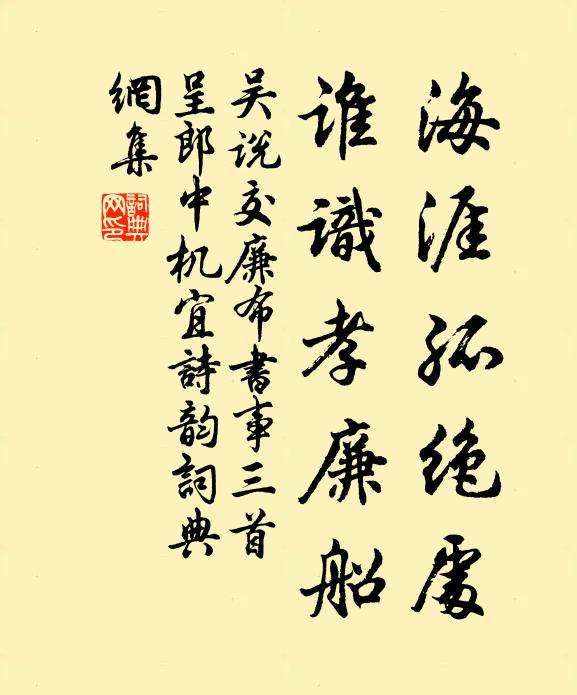 海涯孤绝處
谁識孝廉船
吴说交廉布書事三首
呈郎中机宜詩韵詞典
網集
詞典网印